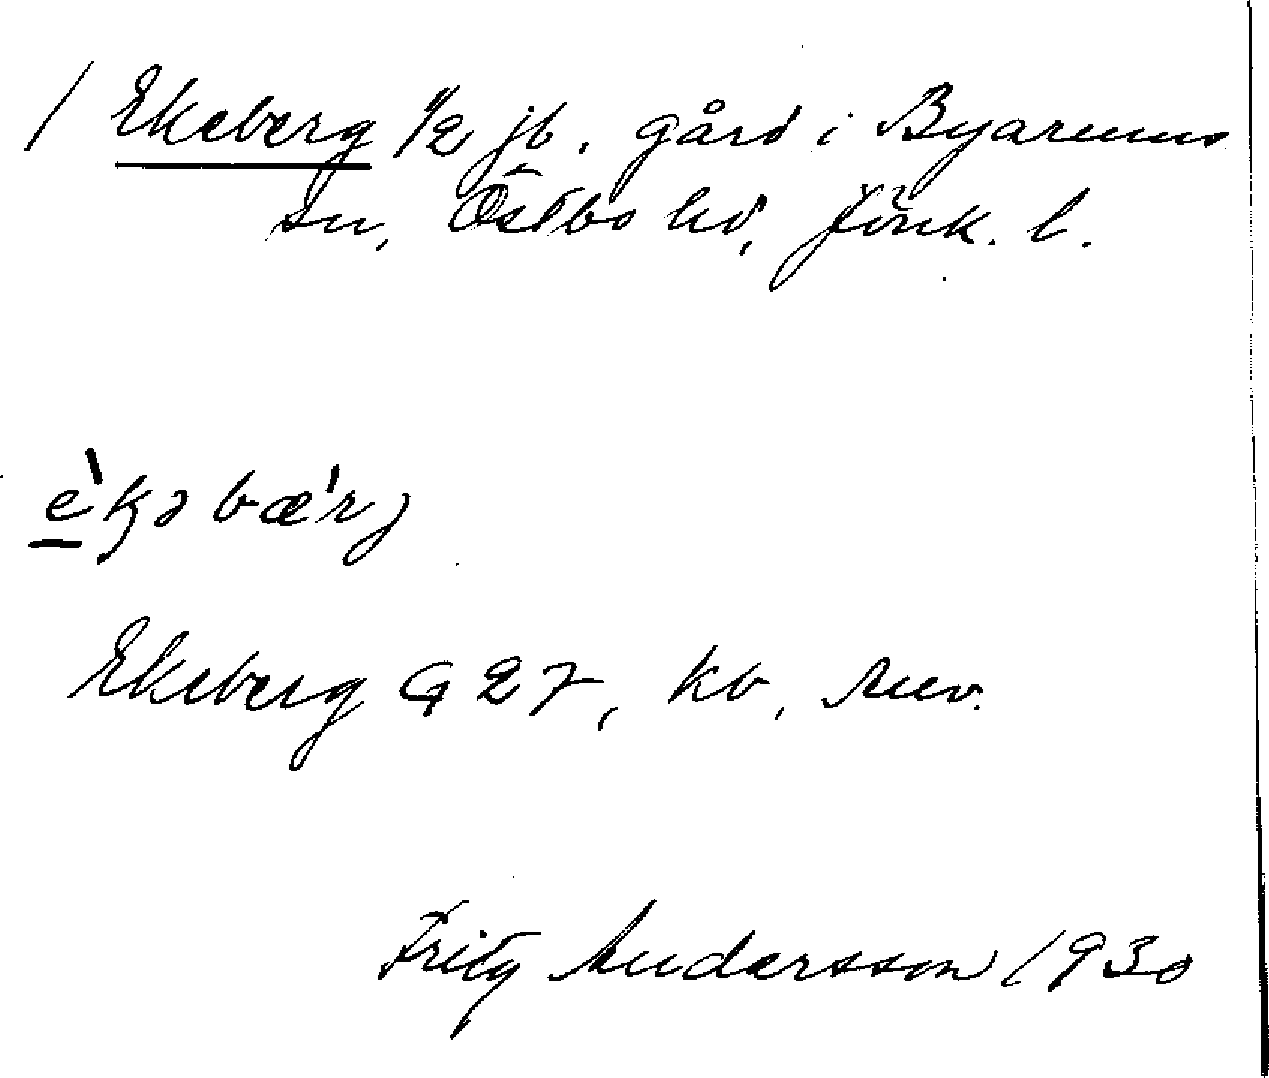 / Ekeberg 1/2 jb. gård i Byarums
sn, Östbo hd, Jönk. l.
è̲kə bæ'rj
Ekeberg G 27, kb,
Fritz Andersson 1930